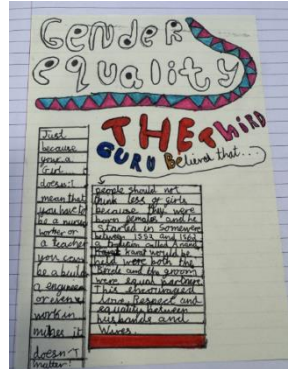 Gender
equality
THE THIRD
GURU Believed that...
Just
because
your a
Girl...
doesn't
mean that
you have to
be a nurse
worker or
a teacher
you can
be a builder
a engineer
or even
work in
it
doesn't
matter!
people should not
think less of girls
because they were
born female and he
started in Somewere
between 1552 and 1562
a tradition called Anand
Karaj would be
held were both the
Bride and the groom
were equal partners
This encouraged
Love, Respect and
equality between
husbands and
Wives.